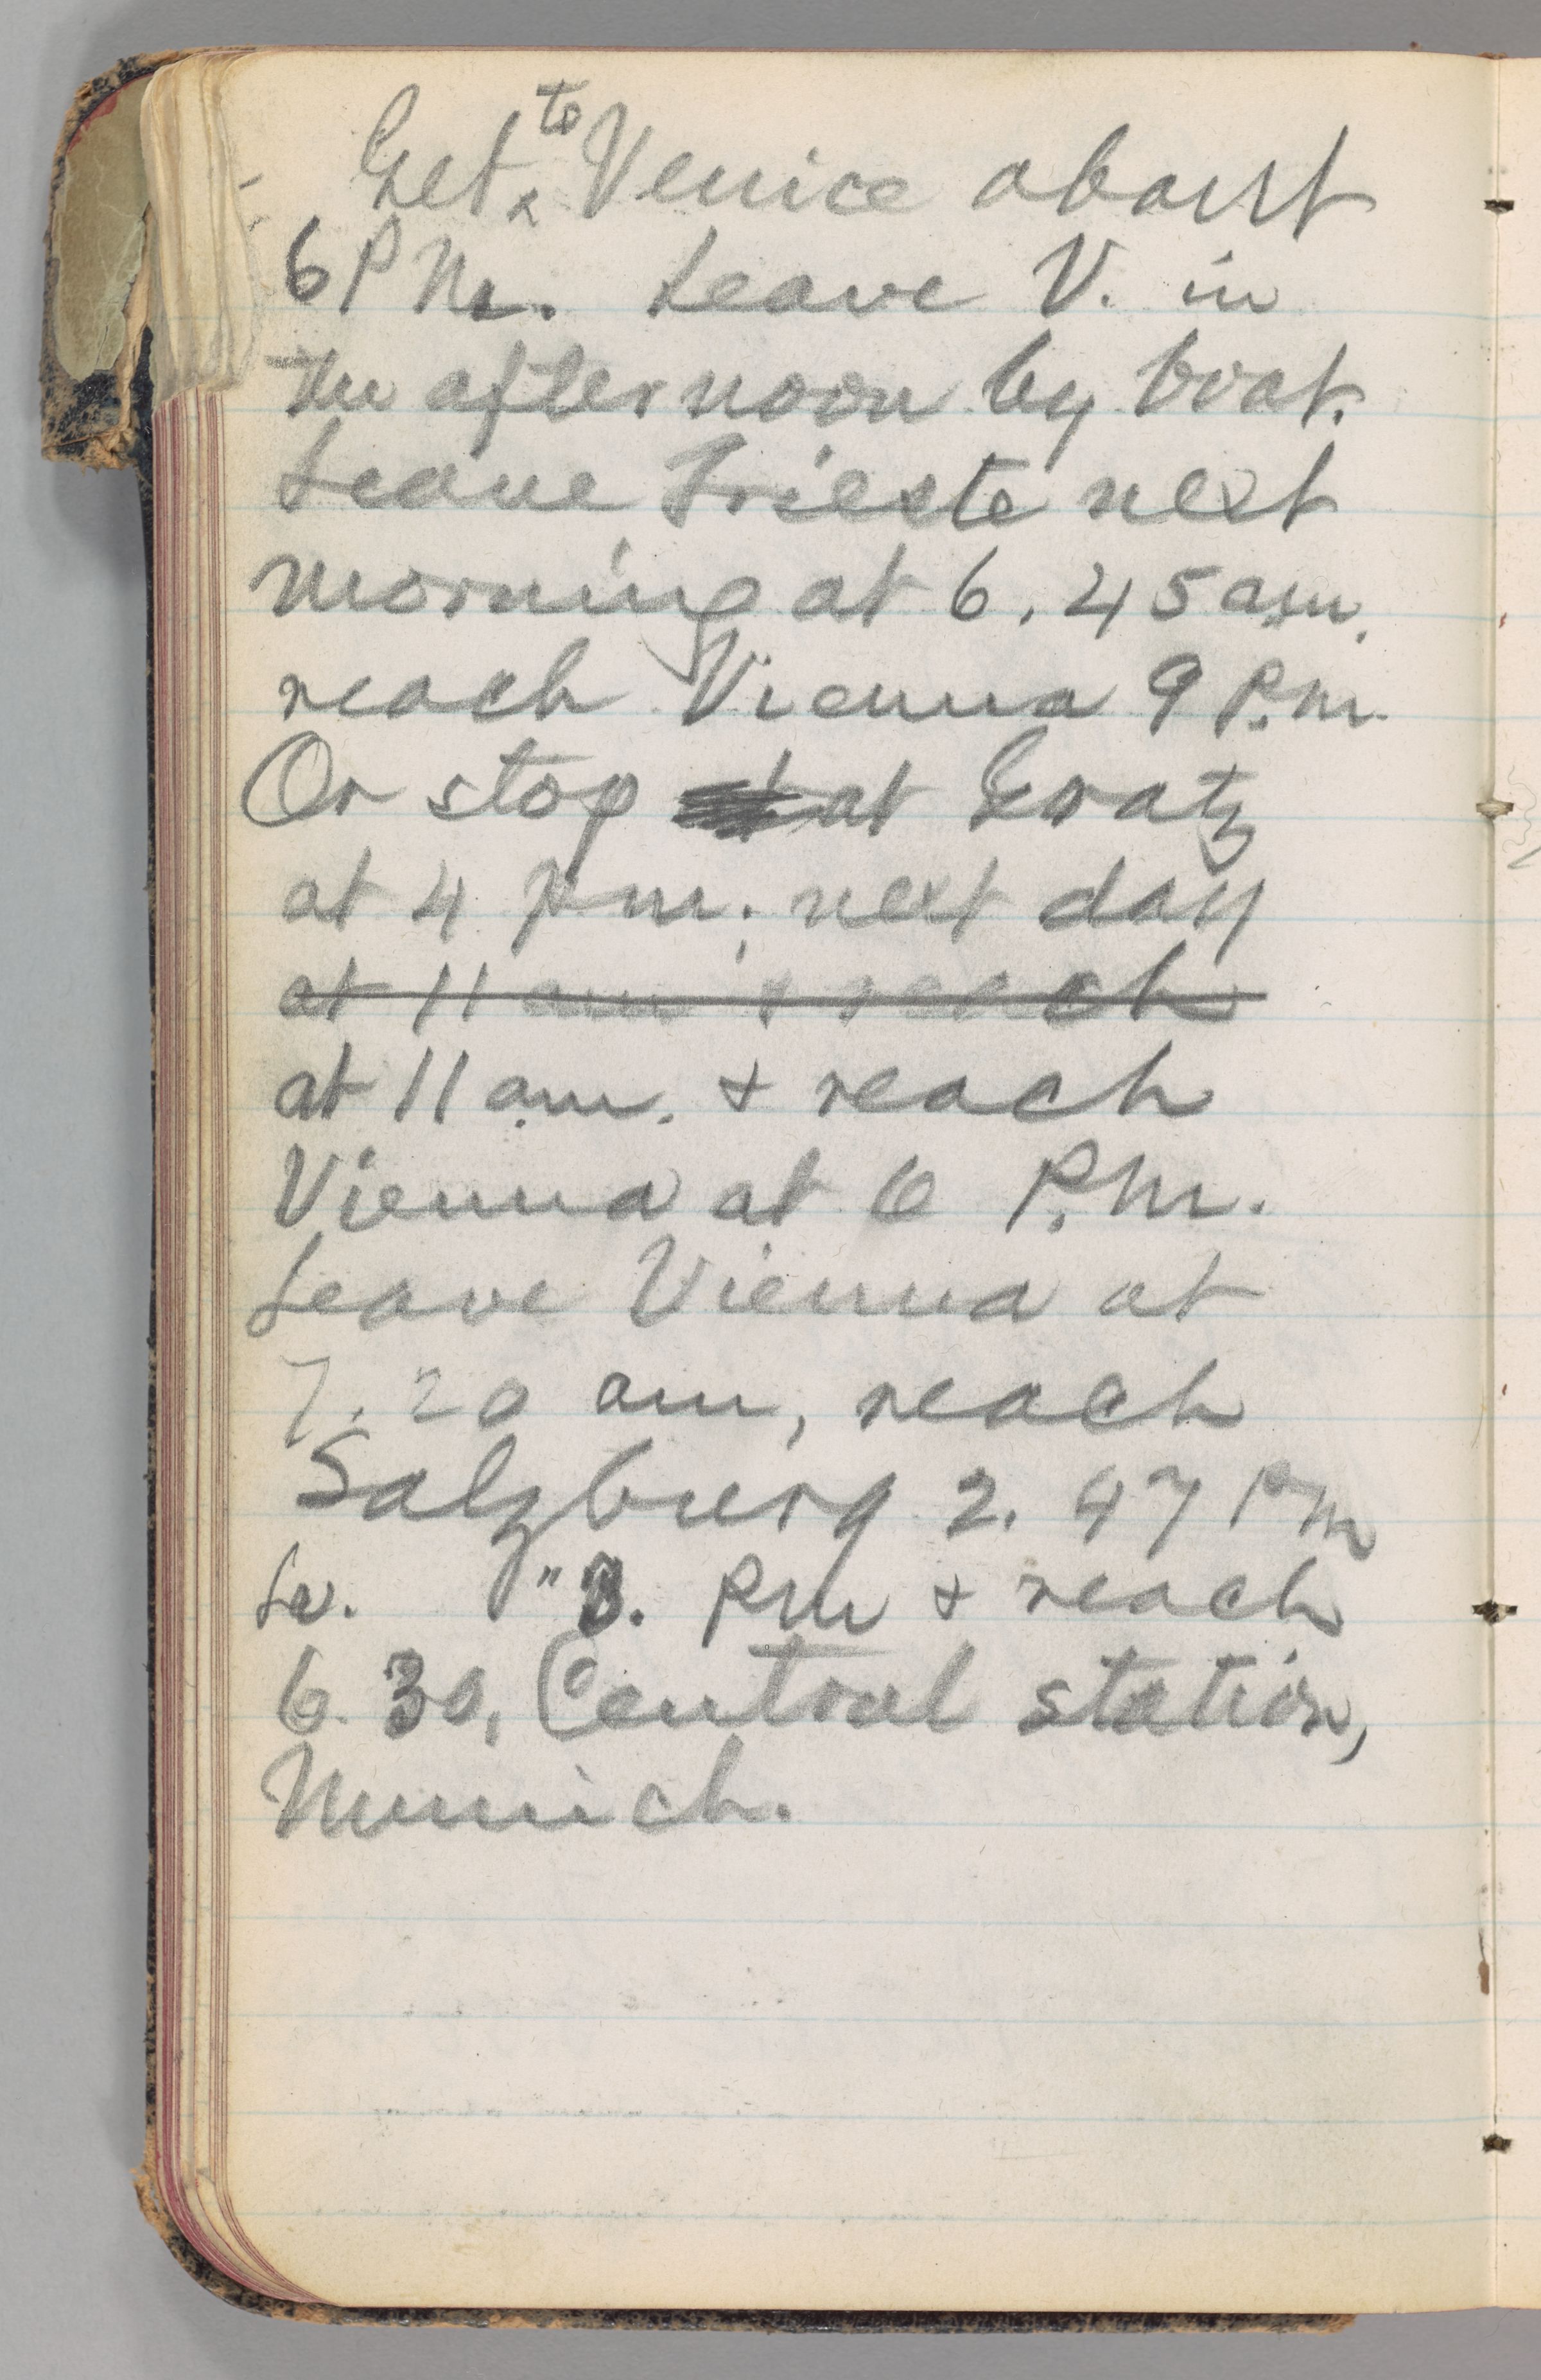 Get ^to Venice about
6 P M. Leave V. in
the afternoon by boat.
Leave Trieste next
morning at 6.45 a.m.
reach Vienna 9 P.m.
Or stop at Gratz
at 4 p m. next day
at 11 am & reach
at 11 a.m. & reach
Vienna at 6 P.M.
Leave Vienna at
7.20 am, reach
Salzburg 2.47 PM
Lv. " 3. PM & reach
6.30, Central station,
Munich.